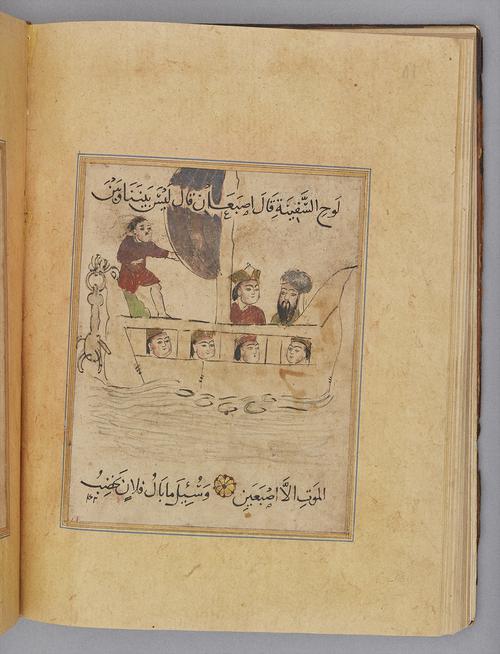 لَوحِ السَّفِينَةِ قَالَ اِصْبَعَانِ قَالَ لَيْسَ بَيْنَنَا وَبَيْنَ
المَوتِ اِلاَّ اِصْبَعَينِ وَسُئِلَ مَا بَالُ فُلَانٍ يَخْضِبُ